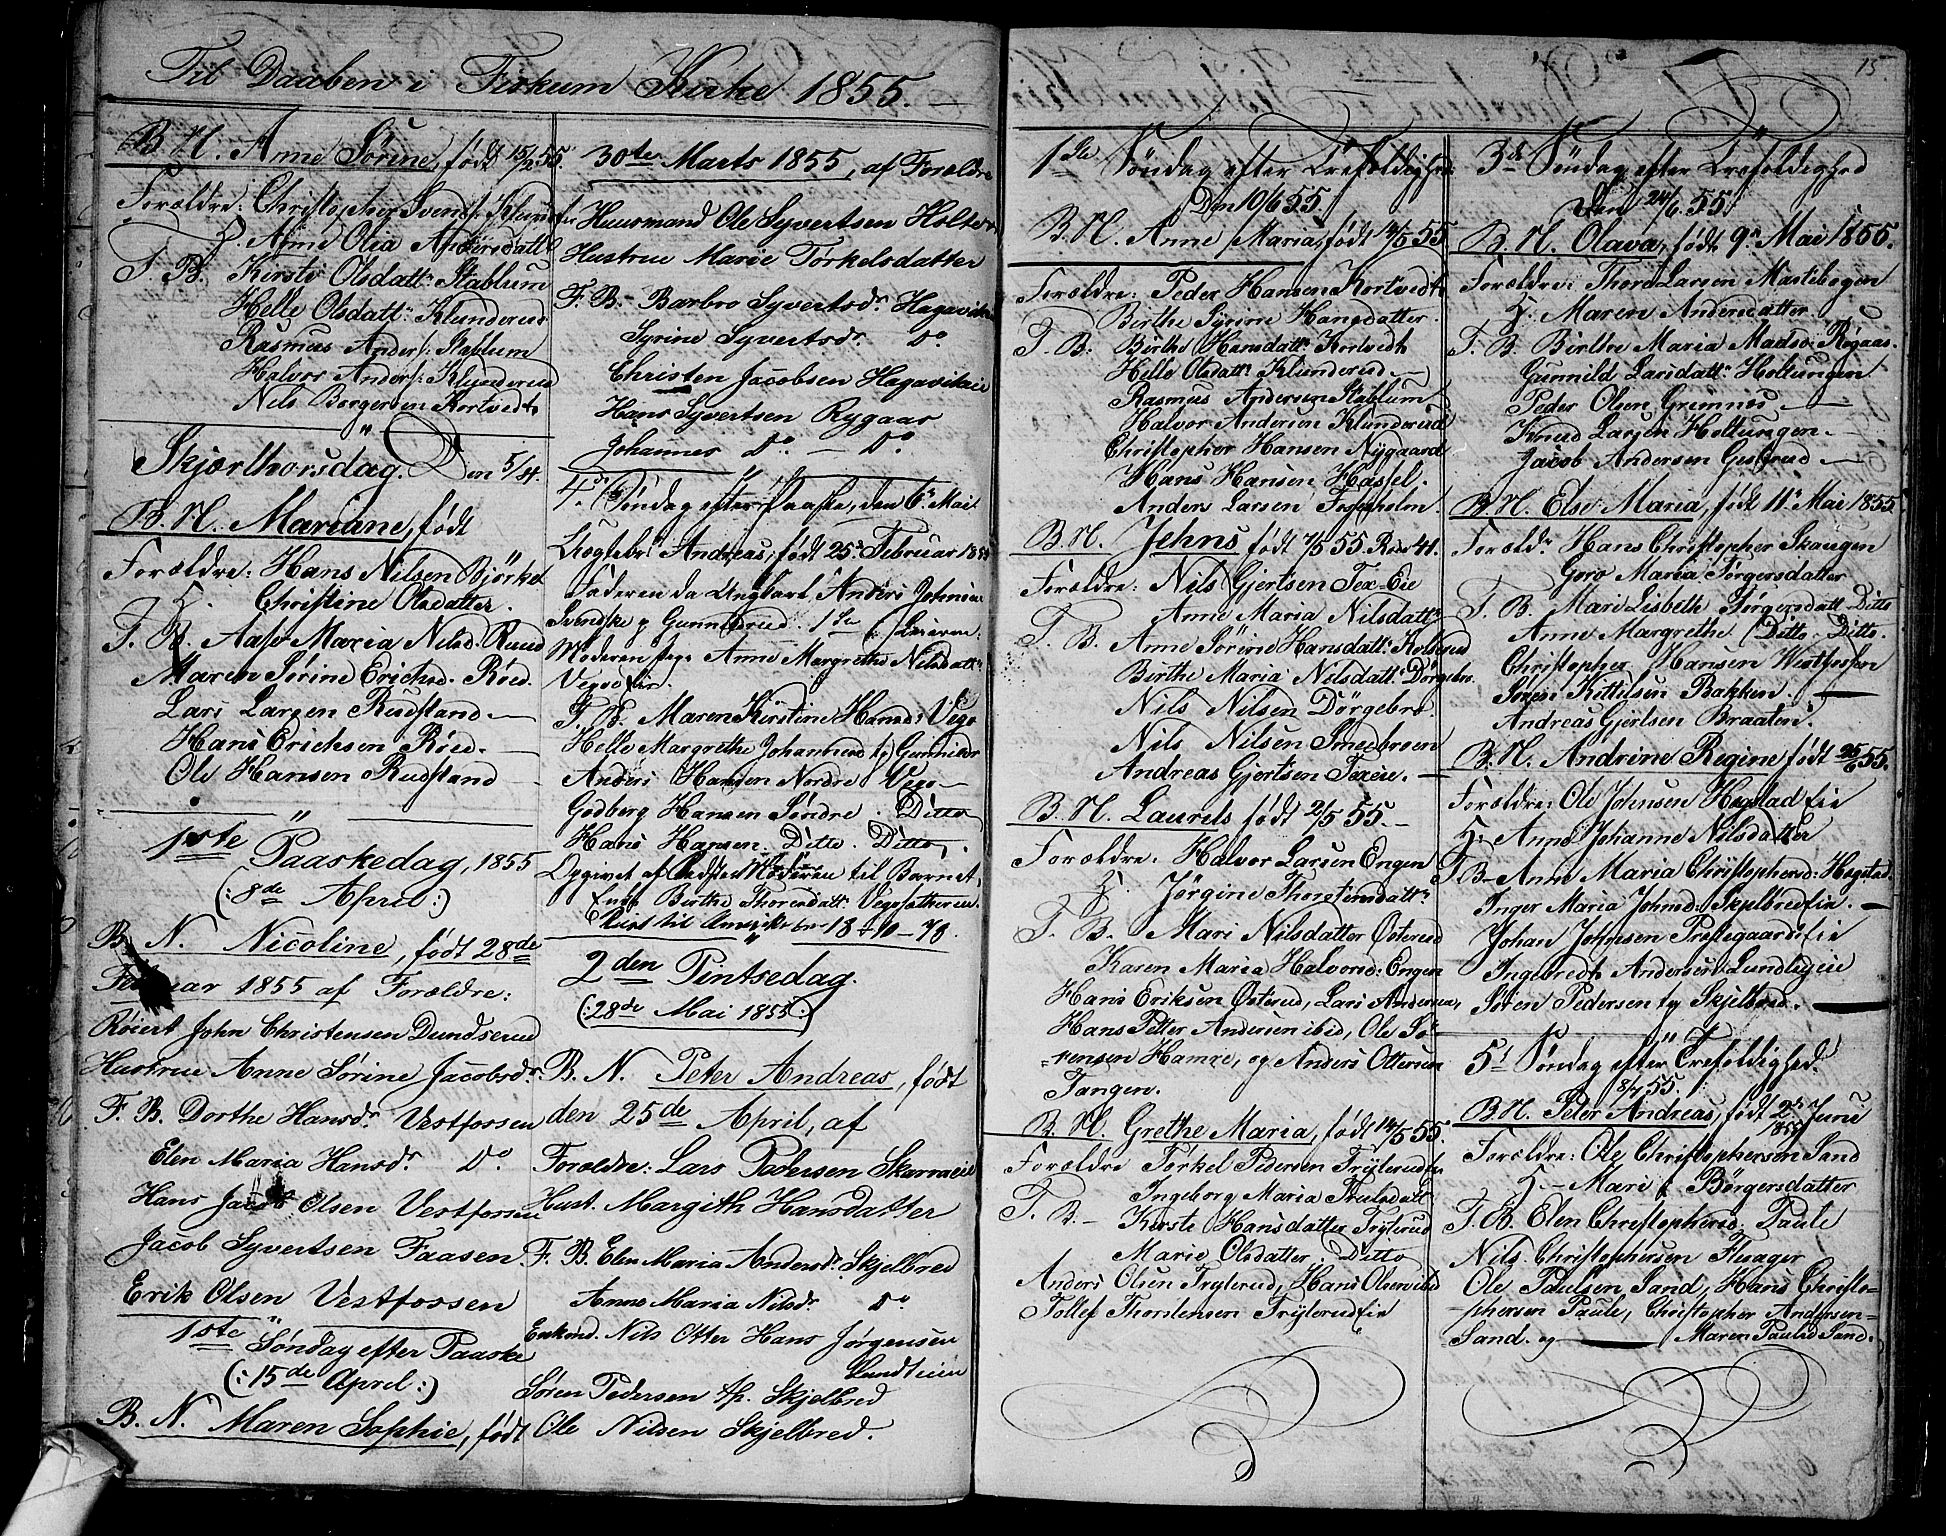 Til Daaben i Fiskum Kirke 1855.
B. N. Anne Sørine, født 15/2 55.
Forældre: Christopher Svends: Klunderud
H. Anne Olia Andersdatt:
F. B. Kirsti Olsdatt: Stablum
Helle Olsdatt: Klunderud
Rasmus Anders: Stablum
Halvor Anders: Klunderud
Nils Borgersen Kortvedt
Skjærthorsdag. Den 5/4.
B. N. Mariane, født
Forældre: Hans Nilsen Bjørke
H. Christine Olsdatter.
F. B. Aase Maria Nilsd. Ruud
Maren Sørine Erichsd. Røed.
Lars Larsen Rudstand
Hans Erichsen Røed.
Ole Hansen Rudstand
1ste Paaskedag, 1855
(: 8de April :)
B. N. Nicoline, født 28de
Februar 1855 af Forældre:
John Christensen Dundserud
Hustrue Anne Sørine Jacobsdr.
F. B. Dorthe Hansdr. Vestfossen
Elen Maria Hansdr. Do
Hans Jacob Olsen Vestfossen
Jacob Syvertsen Faasen
Erik Olsen Vestfossen
1ste Søndag efter Paaske
(: 15de April :)
B. N. Maren Sophie, født
30te Marts 1855, af Forældre
Huusmand Ole Syvertsen Holter
Hustrue Marie Torkelsdatter
F. B. Barbro Syvertsdr. Hagavikeie
Syrine Syvertsdr. Do
Christen Jacobsen Hagavikeie
Hans Syvertsen Rygaas
Johannes Do — Do
4de Søndag efter Paaske, den 6te Mai
Uægtebr: Andreas, født 25de Februar 1855
Faderen da Ungkarl Anders Johnsen
Svendske p Gunnerud. 1ste Leierm:
Moderen Pige Anne Margrethe Nilsdatt:
F. B. Maren Kirstine Hansd: Vego
Helle Margrethe Johannesd
Anders Hansen Nordre Vego
Godberg Hansen Søndre Ditto
Hans Hansen Ditto. Ditto
Opgivet af Moderen til Barnet,
Enke Birthe Thorendatt:
2den Pintsedag.
(: 28de Mai 1855 :)
B. N. Peter Andreas, født
den 25de April, af
Forældre: Lars Pedersen Skarraeie
Hust. Margith Hansdatter
F. B. Elen Maria Andersdr. Skjelbred
Anne Maria Nilsdr. Do
Enkemd. Nils Otter Hans Jørgensen
Lundteien
Søren Pedersen tp. Skjelbred
Ole Nilsen Skjelbred.
15.
1ste Søndag efter Trefoldighed
Den 10/6 55
B. N. Anne Maria, født 14/5 55
Forældre: Peder Hansen Kortvedt
Birthe Syrine Hansdatter.
F. B. Birthe Hansdatt: Kortvedt
Helle Olsdatt: Klunderud
Rasmus Andersen Stablum
Halvor Andersen Klunderud
Christopher Hansen Nygaard
Hans Hansen Hassel.
Anders Larsen Fossholm.
B. N. Jehns født 7/5 55
Forældre: Nils Gjertsen Tex-Eie
Anne Maria Nilsdatt:
F. B. Anne Sørine Hansdatt: Kolserud
Birthe Maria Nilsdatt: Dørgebro
Nils Nilsen Dørgebro.
Nils Nilsen Smedbroen
Andreas Gjertsen Texeie.
B. N. Laurits født 2/5 55.
Forældre: Halvor Larsen Engen
H. Jørgine Thorstensdatt:
F. B. Mari Nilsdatter Østerud
Karen Maria Halvorsd: Engen
Hans Eriksen Østerud, Lars Andersen,
Hans Petter Andersen ibid, Ole Sø-
rensen Hamre, og Anders Ottersen
Tangen.
B. N. Grethe Maria, født 14/5 55.
Forældre Torkel Pedersen Fryleruds
Ingeborg Maria Trulsdatt:
F. B. Kirste Hansdatter Frylerud
Marie Olsdatter Ditto
Anders Olsen Frylerud, Hans Olsen ibid
Tollef Thorstensen Frylerudeie
3de Søndag efter Trefoldighed
Den 24/6 55
B. N. Olava, født 9de Mai 1855.
Forældre: Thord Larsen Mastebogen
H: Maren Andersdatter.
F. B. Birthe Maria Madsd: Røgaas.
Gunnild Larsdatt: Holtungen
Peder Olsen Grimnæs
Knud Larsen Holtungen.
Jacob Andersen
B. N. Else Maria, født 11te Mai 1855.
Foreld: Hans Christopher Skaugen
Goro Maria Jørgersdatter
F. B. Mari Lisbeth Jørgersdatt Ditto
Anne Margrethe Ditto Ditto.
Christopher Hansen Westfossen
Søren Kittilsen Bakken.
Andreas Gjertsen Braaten.
B. N. Andrine Regine født 25/6 55.
Forældre: Ole Johnsen Hogstadeie
H: Anne Johanne Nilsdatter
F. B. Anne Maria Christophersd: Hogstad.
Inger Maria Johnsd: Skjelbredeie.
Johan Johnsen Prestegaardseie
Ingebredt Andersen Lundteigeie
Søren Pedersen tp Skjelbred.
5te Søndag efter Trefoldighed.
8/7 55.
B. N. Peter Andreas, født 2de Juni
1855
Forældre: Ole Christophersen Sand
H. Mari Børgersdatter
F. B. Elen Christophersd: Paule
Nils Christophersen Flesager
Ole Paulsen Sand, Hans Christo-
phersen Paule, Christopher Andersen
Sand. og Maren Paulsd Sand.